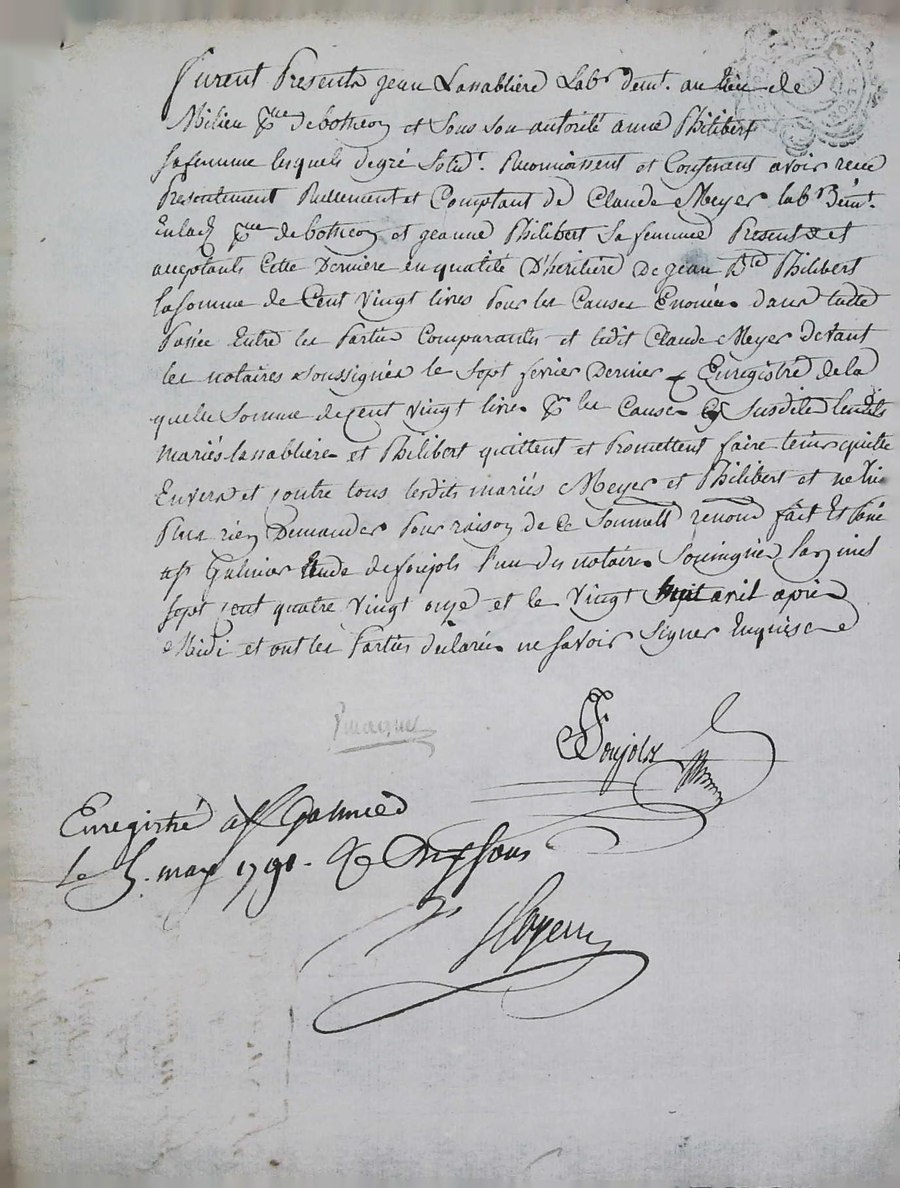 Furent Presents jean Lassablière Lab.r dem.t au lieu de
Milieu de botheon et sous son autorité anne Philibert
sa femme lesquels degré Solid.t Reconnoissent et Confessent avoir receu
Presentement Reellement et Comptant de Claude Meyer lab.r dem.t
de botheon et jeanne Philibert Sa femme Present et
acceptants Cette Derniere en qualité D'heritiere De jean B.te Philibert
la somme de Cent vingt livres Pour les Causes Enoncée dans
Passée Entre les Parties Comparantes et ledit Claude Meyer devant
les notaires soussignés le Sept fevrier Dernier Enregistré de la
quelle Somme de Cent vingt livres les Causes Susdite lesdits
mariés lassabliere et Philibert quittent et Promettent faire tenir quitte
Envers et contre tous lesdits mariés Meyer et Philibert et ne
Plus rien Demander Pour raison de Ce renond fait Et Passé
a S.t Galmier Etude de foujols l'un des notaires Soussignés l'an mil
Sept cent quatre vingt onze et le vingt huit avril après
Midi et ont les Parties déclarée ne savoir Signer Enquise
Foujols
Enregistré a S.t Galmier
le 5. may 1791. Dix sous